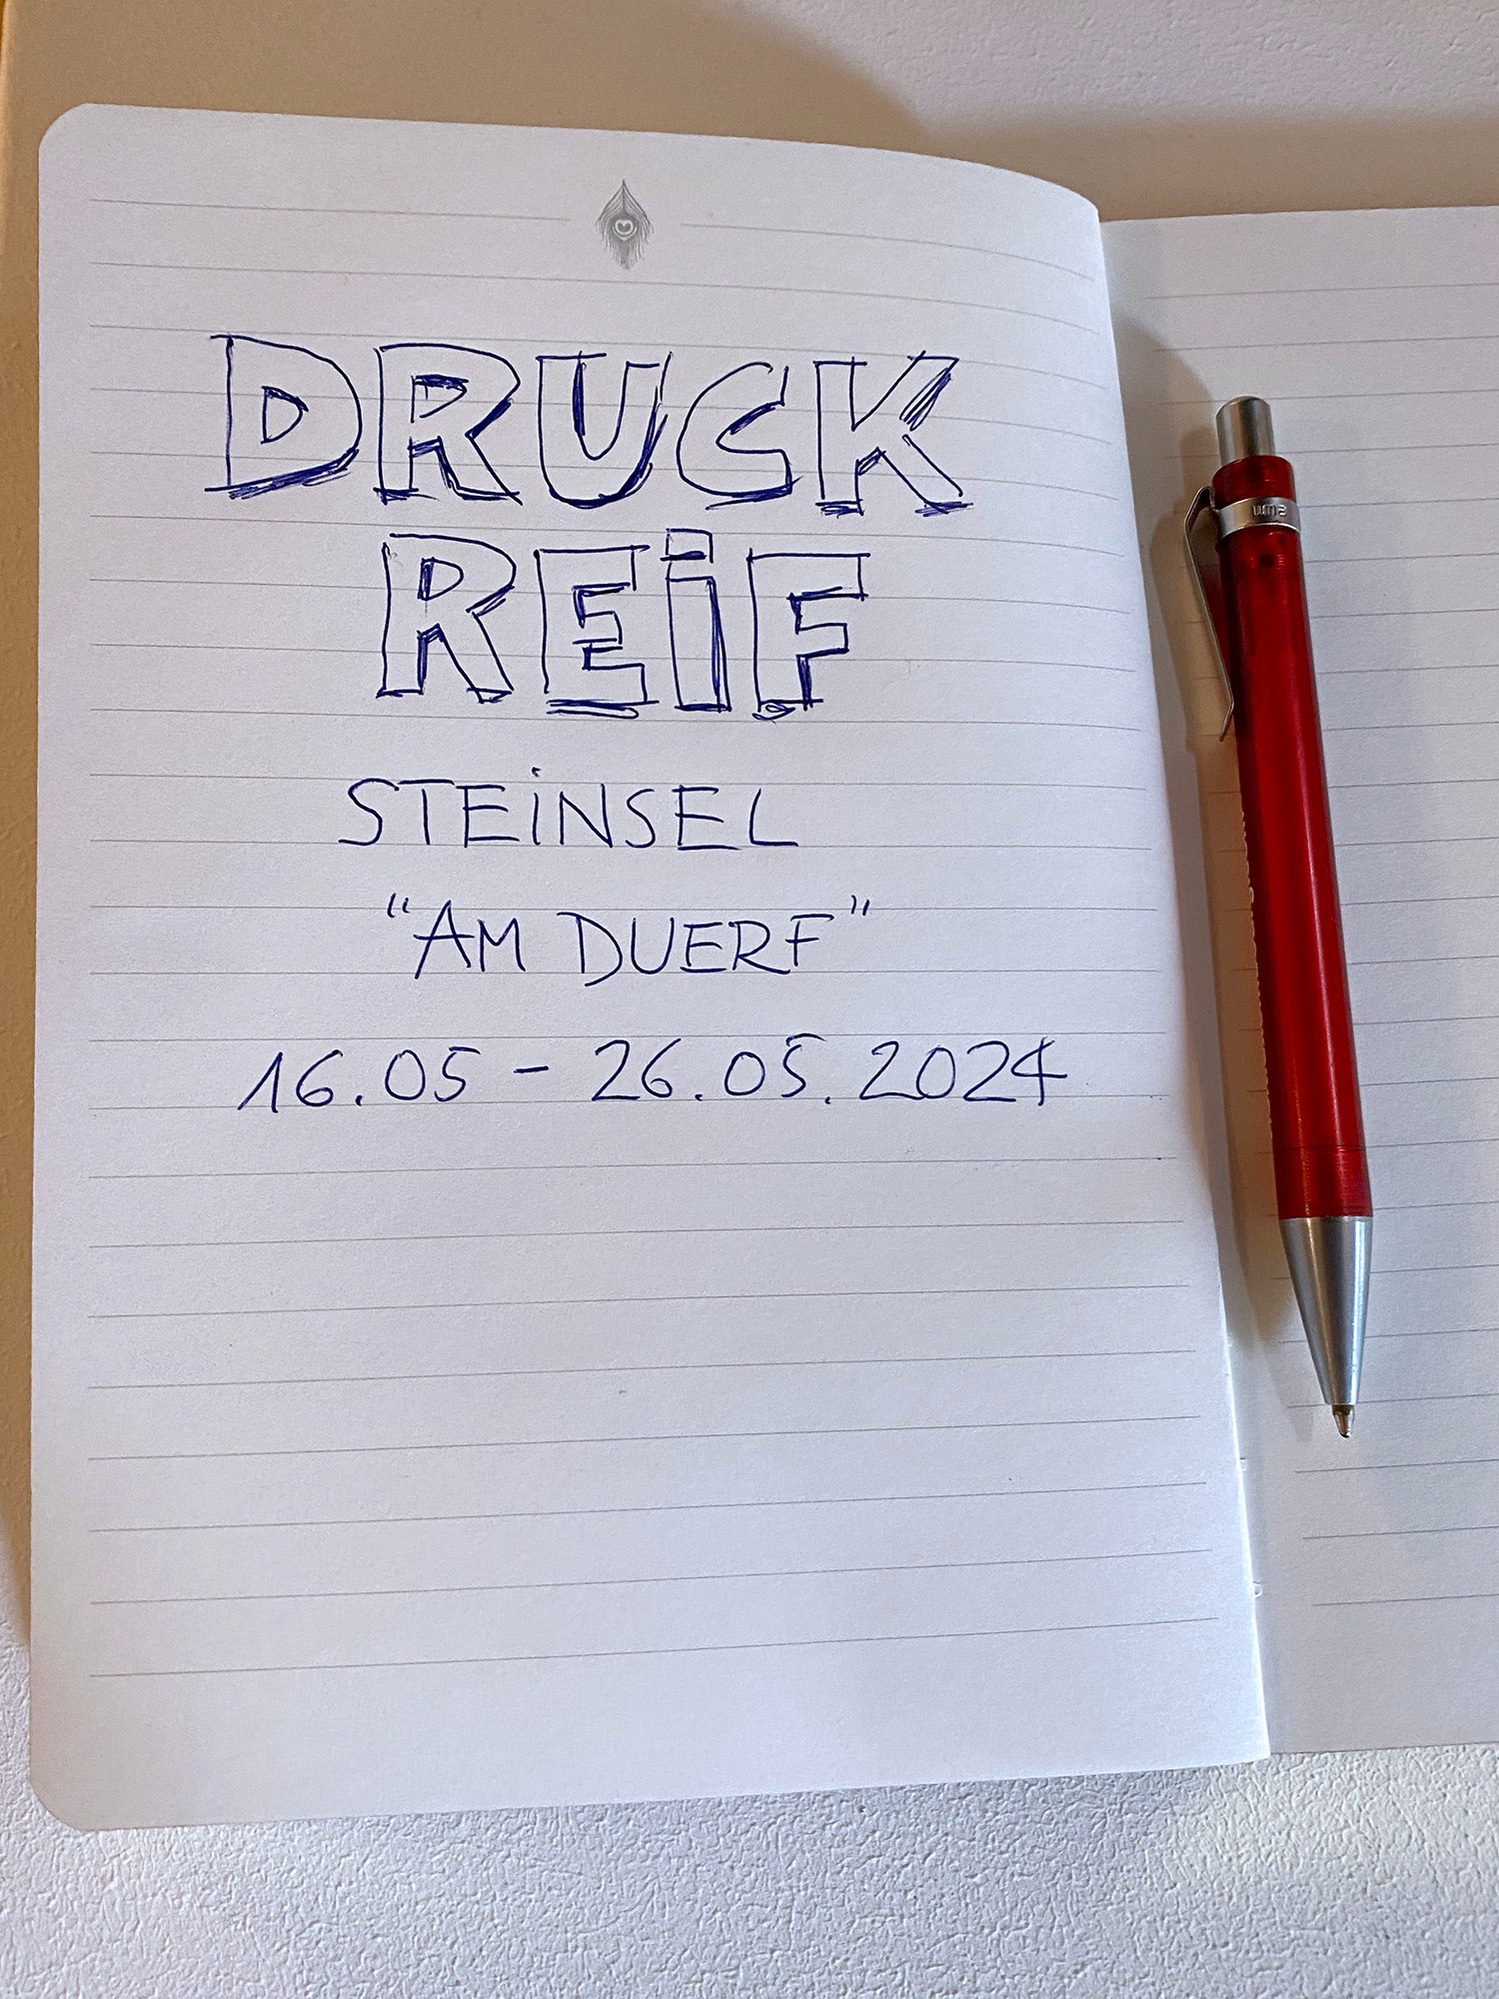 DRUCK
REiF
STEiNSEL
"AM DUERF"
16.05 - 26.05.2024